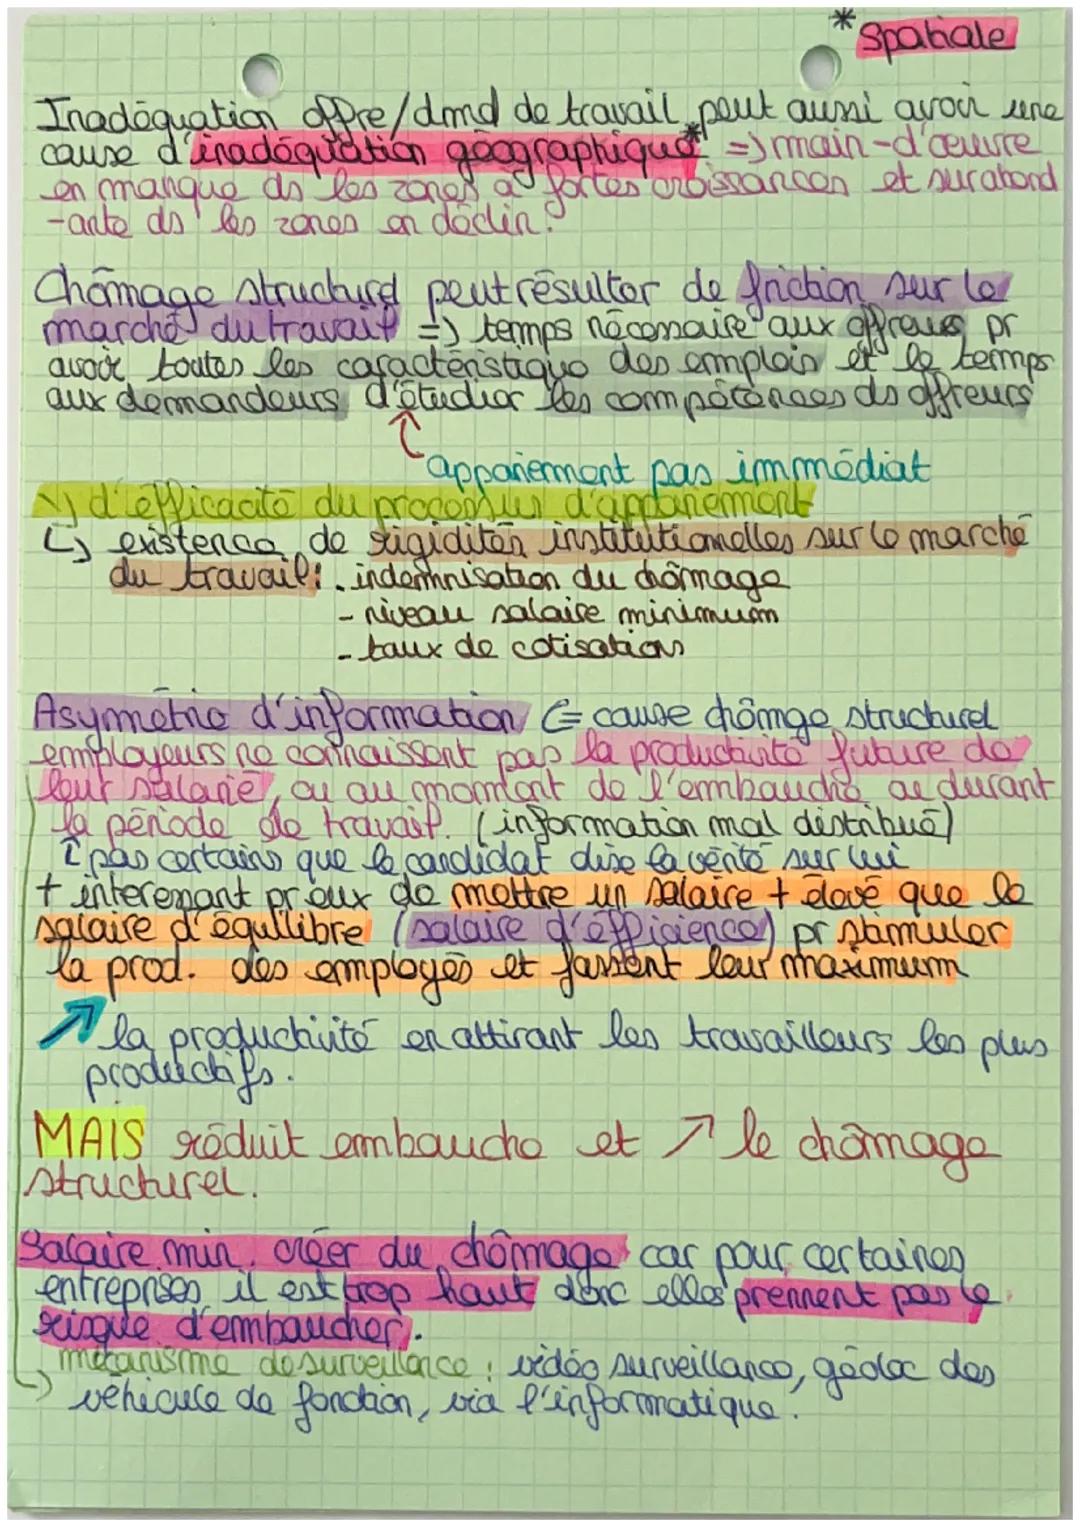 * Spatiale
Inadéquation offre/dmd de travail peut aussi avoir une
cause d'inadéquation géographique* => main-d'œuvre
en manque ds les zones à fortes croissances et surabond
-ante ds les zones en déclin.
Chômage structurel peut résulter de friction sur le
marché du travail => temps nécessaire aux offreurs pr
avoir toutes les caractéristique des emplois et le temps
aux demandeurs d'étudier les compétences ds offreurs
appariement pas immédiat
↘ d'efficacité du processus d'appariement
↳ existence de rigidités institutionelles sur le marché
du travail: - indemnisation du chômage
- niveau salaire minimum
- taux de cotisations
Asymétrie d'information <= cause chômge structurel
employeurs ne connaissent pas la productivité future de
leur salarié, ou au moment de l'embauche ou durant
la période de travail. (information mal distribué)
↑ pas certains que le candidat dise la vérité sur lui
+ interessant pr eux de mettre un salaire + élevé que le
salaire d'équilibre (salaire d'éfficience) pr stimuler
la prod. des employés et fassent leur maximum
↗ la productivité en attirant les travailleurs les plus
productifs.
MAIS réduit embauche et ↗ le chômage
structurel.
Salaire min. créer du chômage car pour certaines
entreprises il est trop haut donc elles prennent pas le
risque d'embaucher.
↳ mécanisme de surveillance : vidéo surveillance, géoloc des
véhicule de fonction, via l'informatique.